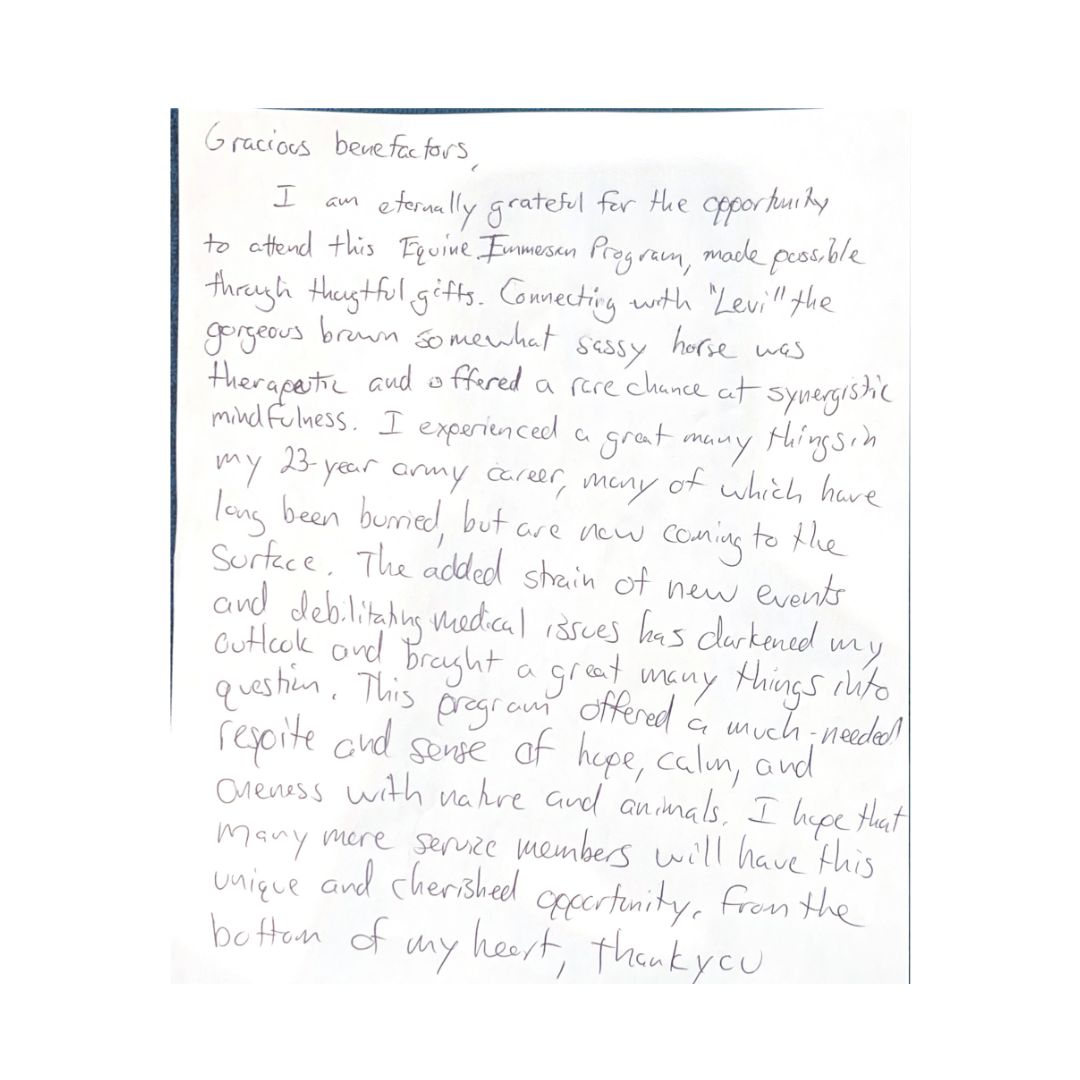 Gracious benefactors,
I am eternally grateful for the opportunity
to attend this Equine Immersion Program, made possible
through thoughtful gifts. Connecting with "Levi" the
gorgeous brown somewhat sassy horse was
therapeutic and offered a rare chance at synergistic
mindfulness. I experienced a great many things in
my 23-year army career, many of which have
long been burried, but are now coming to the
surface. The added strain of new events
and debilitating medical issues has darkened my
outlook and brought a great many things into
question. This program offered a much-needed
respite and sense of hope, calm, and
oneness with nature and animals. I hope that
many more service members will have this
unique and cherished opportunity. From the
bottom of my heart, thank you